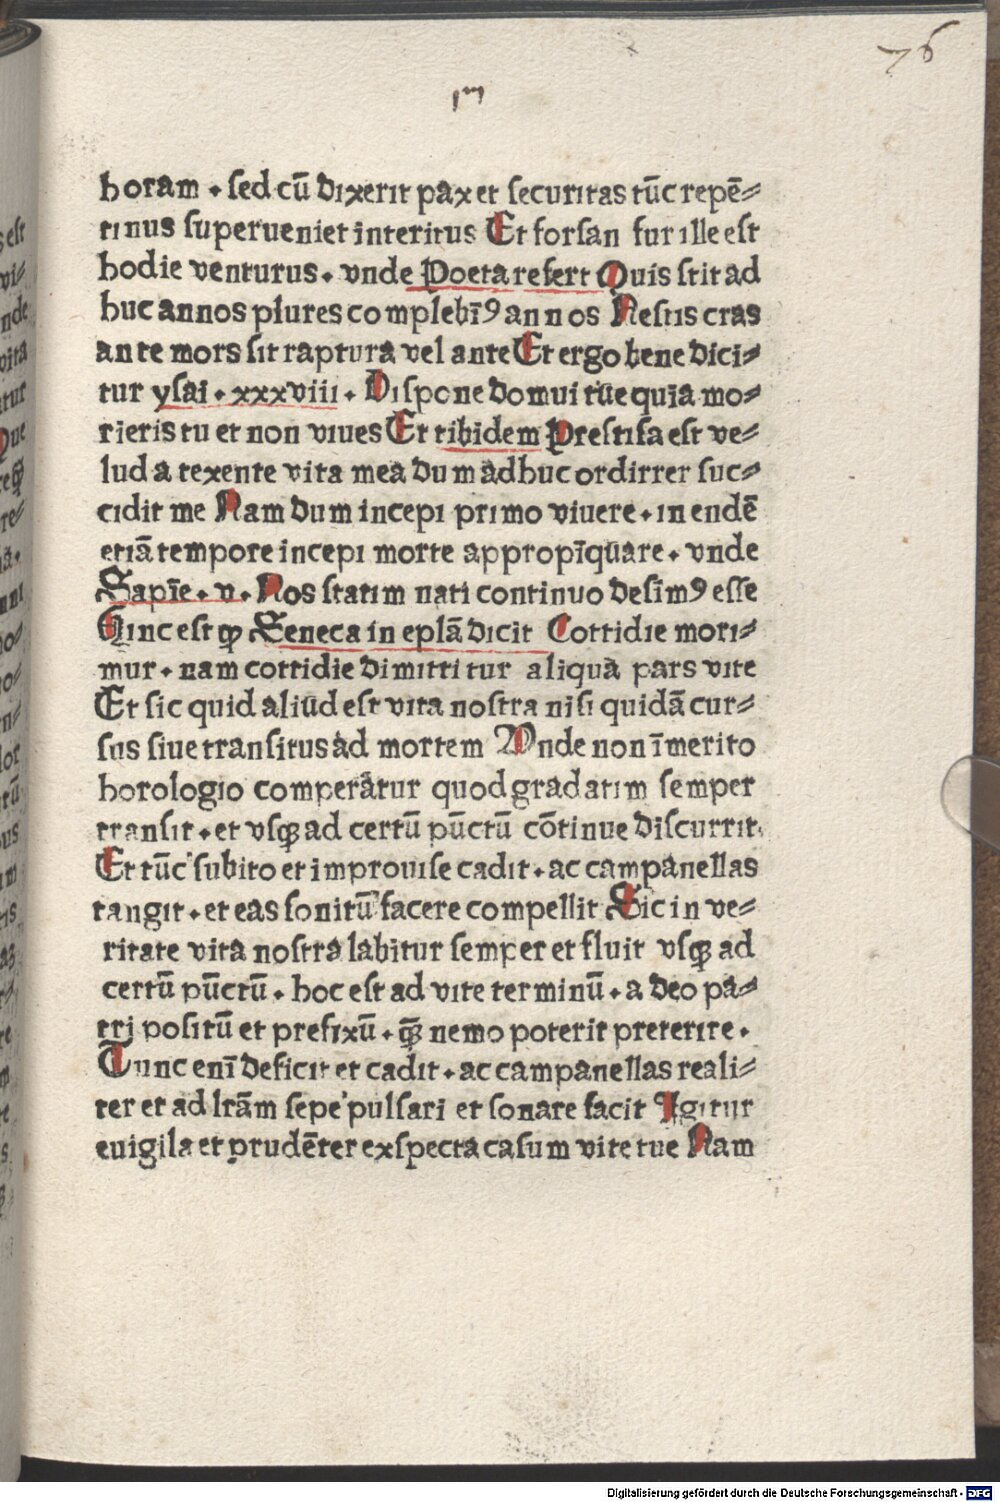 76
m
horam . sed cū dixerit pax et securitas tūc repē⸗
tinus superueniet interitus Et forsan fur ille est
hodie venturus . vnde Poeta refert Quis scit ad
huc annos plures complebīꝰ annos Nescis cras
ante mors sit raptura vel ante Et ergo bene dici⸗
tur ysai . xxxviii . Dispone domui tue quia mo⸗
rieris tu et non viues Et ibidem Precisa est ve⸗
lud a texente vita mea dum adhuc ordirer suc⸗
cidit me Nam dum incepi primo viuere . in eodē
etiā tempore incepi morte appropīquare . vnde
Sapīe . v . Nos statim nati continuo desīmꝰ esse
Hinc est ꝙ Seneca in eplā dicit Cottidie mori⸗
mur . nam cottidie dimittitur aliqua pars vite
Et sic quid aliud est vita nostra nisi quidā cur⸗
sus siue transitus ad mortem Vnde non īmerito
horologio comperātur quod gradatim semper
transit . et vsqꝫ ad certū pūctū cōtinue discurrit.
Et tūc subito et improuise cadit . ac campanellas
tangit . et eas sonitū facere compellit Sic in ve⸗
ritate vita nostra labitur semper et fluit vsqꝫ ad
certū pūctū . hoc est ad vite terminū . a deo pa⸗
tri positū et prefixū . qꝫ nemo poterit preterire .
Tunc enī deficit et cadit . ac campanellas reali⸗
ter et ad lrām sepe pulsari et sonare facit Igitur
euigila et prudēter exspecta casum vite tue Nam
Digitalisierung gefördert durch die Deutsche Forschungsgemeinschaft - DFG